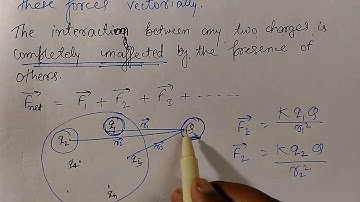 these forces vectorially.
The interaction between any two charges is
completely unaffected by the presence of
others.
F⃗net = F⃗1 + F⃗2 + F⃗3 + - - - - - -
q1 r⃗1 Q F⃗1 = K q1 Q / r1²
q2 r⃗2 F⃗2 = K q2 Q / r2²
q3 r⃗3
q4 qn